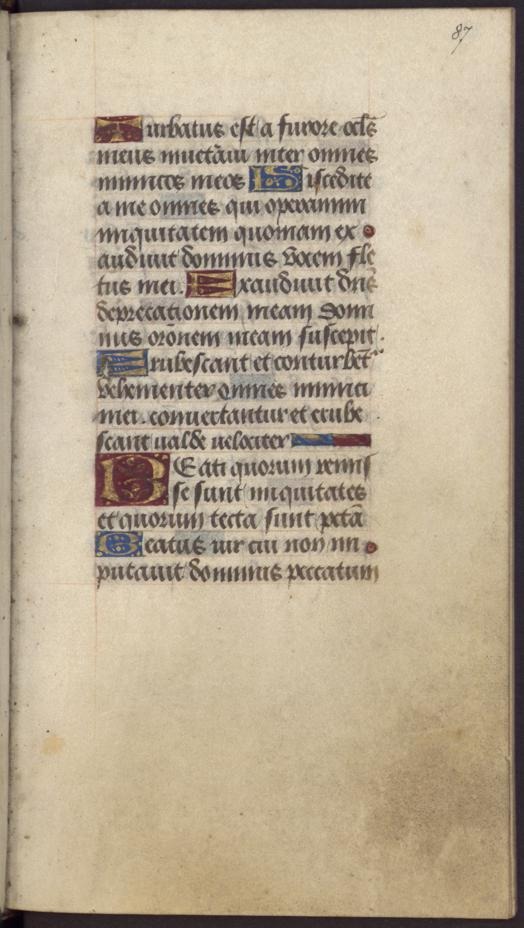 87
Turbatus est a furore ocl̄s
meus inuet̄aui inter omnes
inimicos meos Discedite
a me omnes qui operamini
iniquitatem quoniam ex
audiuit dominus vocem fle
tus mei. Exaudiuit dn̄s
deprecationem meam domi
nus orōnem meam suscepit.
Erubescant et conturbēt
vehementer omnes inimici
mei. conuertantur et erube
scant ualde uelociter
BEati quorum remis
se sunt iniquitates
et quorum tecta sunt pctā
Beatus uir cui non im
putauit dominus peccatum